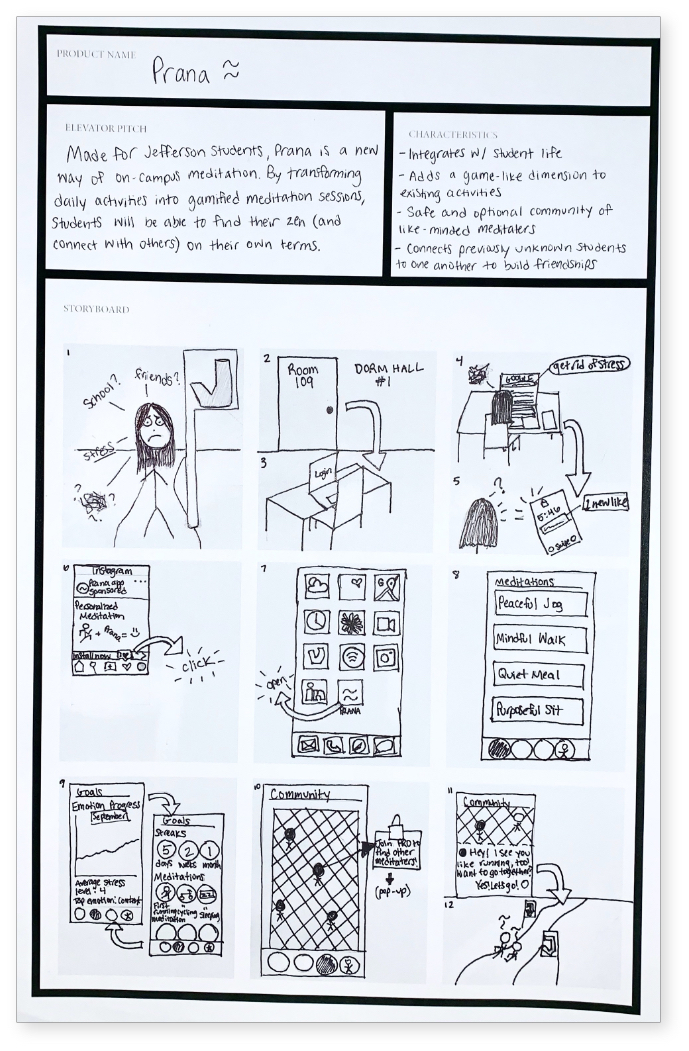 PRODUCT NAME
Prana ≈
ELEVATOR PITCH
Made for Jefferson Students, Prana is a new
way of on-campus meditation. By transforming
daily activities into gamified meditation sessions,
Students will be able to find their zen (and
connect with others) on their own terms.
CHARACTERISTICS
- Integrates w/ student life
- Adds a game-like dimension to
existing activities
- Safe and optional community of
like-minded meditaters
- Connects previously unknown students
to one another to build friendships
STORYBOARD
1
school?
friends?
stress
? ? ?
2
Room
109
DORM HALL
#1
3
Login
4
GOOGLE
get rid of stress
5
?
5:46
1 new like
6
Instagram
Prana app
sponsored
Personalized
Meditation
+ Prana =
Install now
click
7
G
open
PRANA
8
Meditations
Peaceful Jog
Mindful Walk
Quiet Meal
Purposeful Sit
9
Goals
Emotion Progress
September
Average stress
level: 4
Top emotion: content
Goals
Streaks
5 2 1
days weeks month
Meditations
First
running cycling
meditation
10
Community
Join PRO to
find other
meditaters!
(pop-up)
11
Community
Hey! I see you
like running, too!
Want to go together?
Yes! Let's go!
12